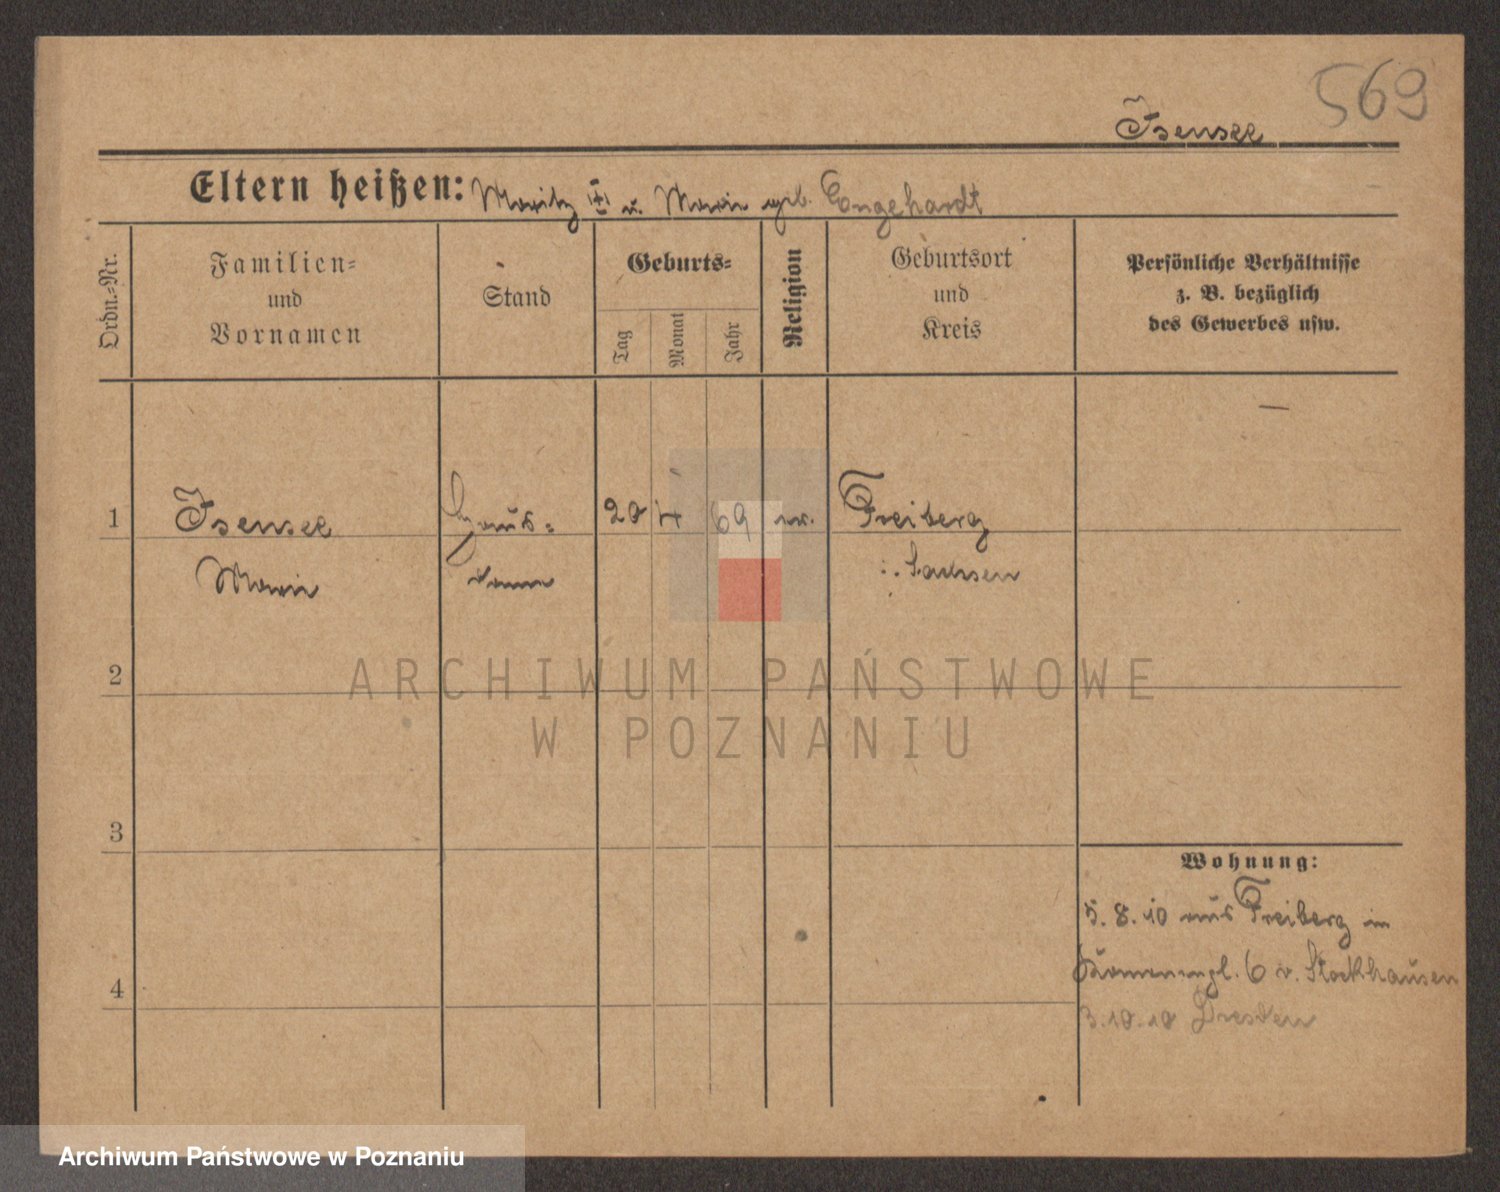 569
Isensee
Eltern heißen: Moritz u. Marie geb. Engehardt
Ordn.-Nr.
Familien-
und
Vornamen
Stand
Geburts-
Tag
Monat
Jahr
Religion
Geburtsort
und
Kreis
Persönliche Verhältnisse
z. B. bezüglich
des Gewerbes usw.
1
Isensee
Marie
Haus-
dame
20
4
69
ev.
Freiberg
i. Sachsen
2
3
4
Wohnung:
5. 8. 10 aus Freiberg in
6 v. Stockhausen
3. 10. 10 Dresden
ARCHIWUM PAŃSTWOWE
W POZNANIU
Archiwum Państwowe w Poznaniu